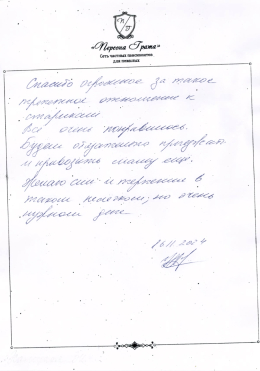 «Персона Гранта»
Сеть частных пансионатов
для пожилых
Спасибо огромное за такое
трепетное отношение к
старикам
все очень понравилось.
Будем обязательно
и привозить маму еще.
Желаю сил и терпения в
таком нелегком, но очень
нужном деле